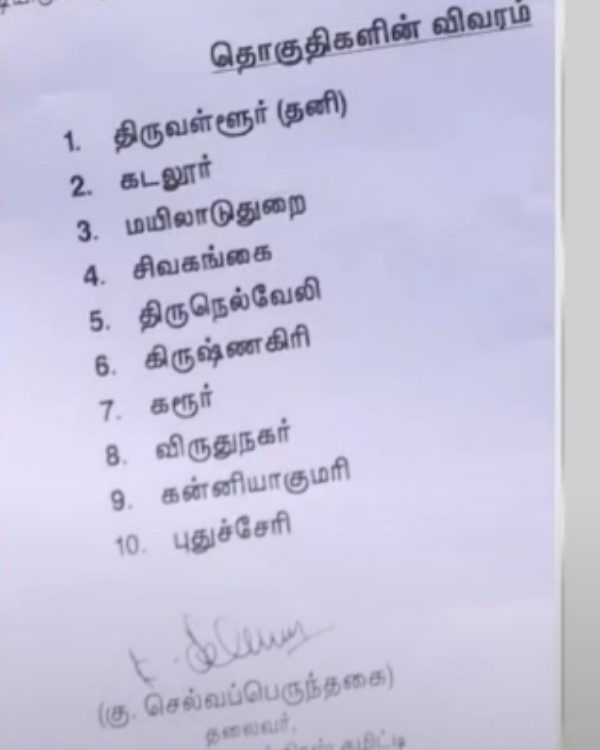 தொகுதிகளின் விவரம்
1. திருவள்ளூர் (தனி)
2. கடலூர்
3. மயிலாடுதுறை
4. சிவகங்கை
5. திருநெல்வேலி
6. கிருஷ்ணகிரி
7. கரூர்
8. விருதுநகர்
9. கன்னியாகுமரி
10. புதுச்சேரி
(கு. செல்வப்பெருந்தகை)
தலைவர்,
கமிட்டி